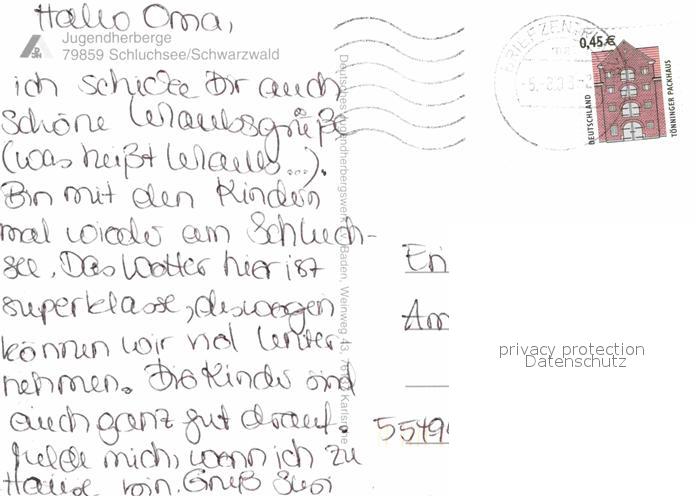 Hallo Oma,
Jugendherberge
79859 Schluchsee/Schwarzwald
ich schicke Dir auch
schöne Urlaubsgrüße
(was heißt Urlaub...).
Bin mit den Kindern
mal wieder am Schluch-
see. Das Wetter hier ist
superklasse, deswegen
können wir viel unter-
nehmen. Die Kinder sind
auch ganz gut drauf.
melde mich, wenn ich zu
Hause bin. Gruß Susi
Deutsches Jugendherbergswerk LV Baden, Weinweg 43, Karlsruhe
BRIEFZENTR
0,45 €
DEUTSCHLAND
TÖNNINGER PACKHAUS
Eri
Am
5549
privacy protection
Datenschutz